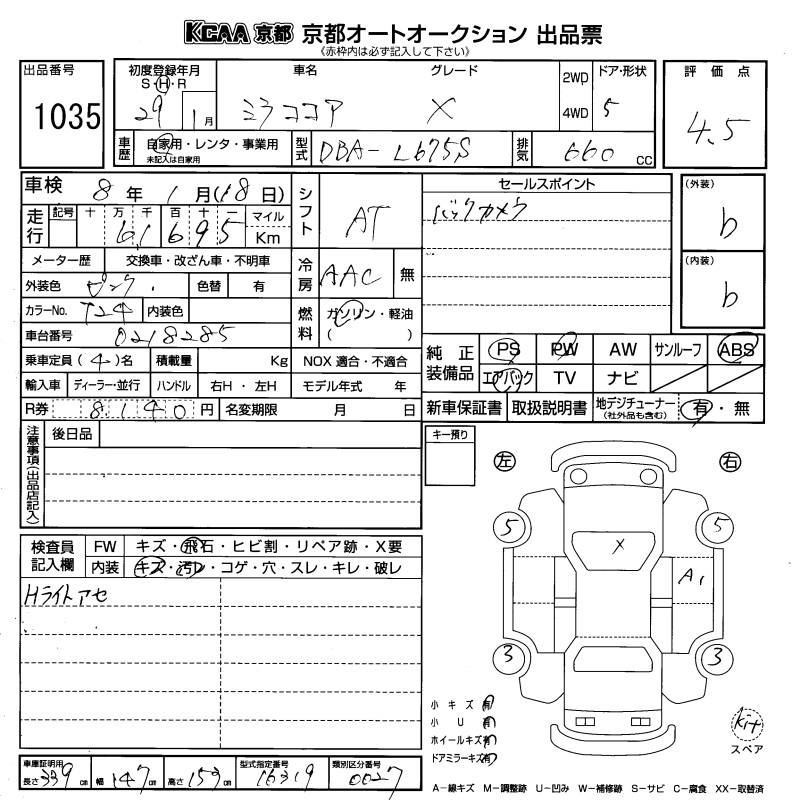 KCAA 京都 京都オートオークション 出品票
《赤枠内は必ず記入して下さい》
出品番号 1035
初度登録年月 S・H・R 29 1月
車名 ミラココア グレード X
2WD 4WD ドア・形状 5
評価点 4.5
車歴 自家用・レンタ・事業用 未記入は自家用
型式 DBA-L675S 排気 660 cc
車検 8年 1月(18日)
シフト AT
セールスポイント
バックカメラ
(外装) b
(内装) b
走行 記号 十 万 千 百 十 一 マイル Km
61695
メーター歴 交換車・改ざん車・不明車
冷房 AAC 無
外装色 ピンク. 色替 有
カラーNo. T24 内装色
燃料 ガソリン・軽油 ( )
車台番号 0218285
乗車定員 (4)名 積載量 Kg NOX 適合・不適合
輸入車 ディーラー・並行 ハンドル 右H・左H モデル年式 年
R券 8140円 名変期限 月 日
純正装備品 PS PW AW サンルーフ ABS
エアバック TV ナビ
新車保証書 取扱説明書 地デジチューナー(社外品も含む) 有・無
注意事項(出品店記入) 後日品
キー預り
左 右
5 5
X
A1
3 3
検査員記入欄 FW キズ・飛石・ヒビ割・リペア跡・X要
内装 キズ・汚レ・コゲ・穴・スレ・キレ・破レ
Hライトアセ
小キズ有
小U有
ホイールキズ有
ドアミラーキズ有
kit
スペア
車庫証明用 長さ 339cm 幅 147cm 高さ 153cm 型式指定番号 16319 類別区分番号 0027
A-線キズ M-調整跡 U-凹み W-補修跡 S-サビ C-腐食 XX-取替済